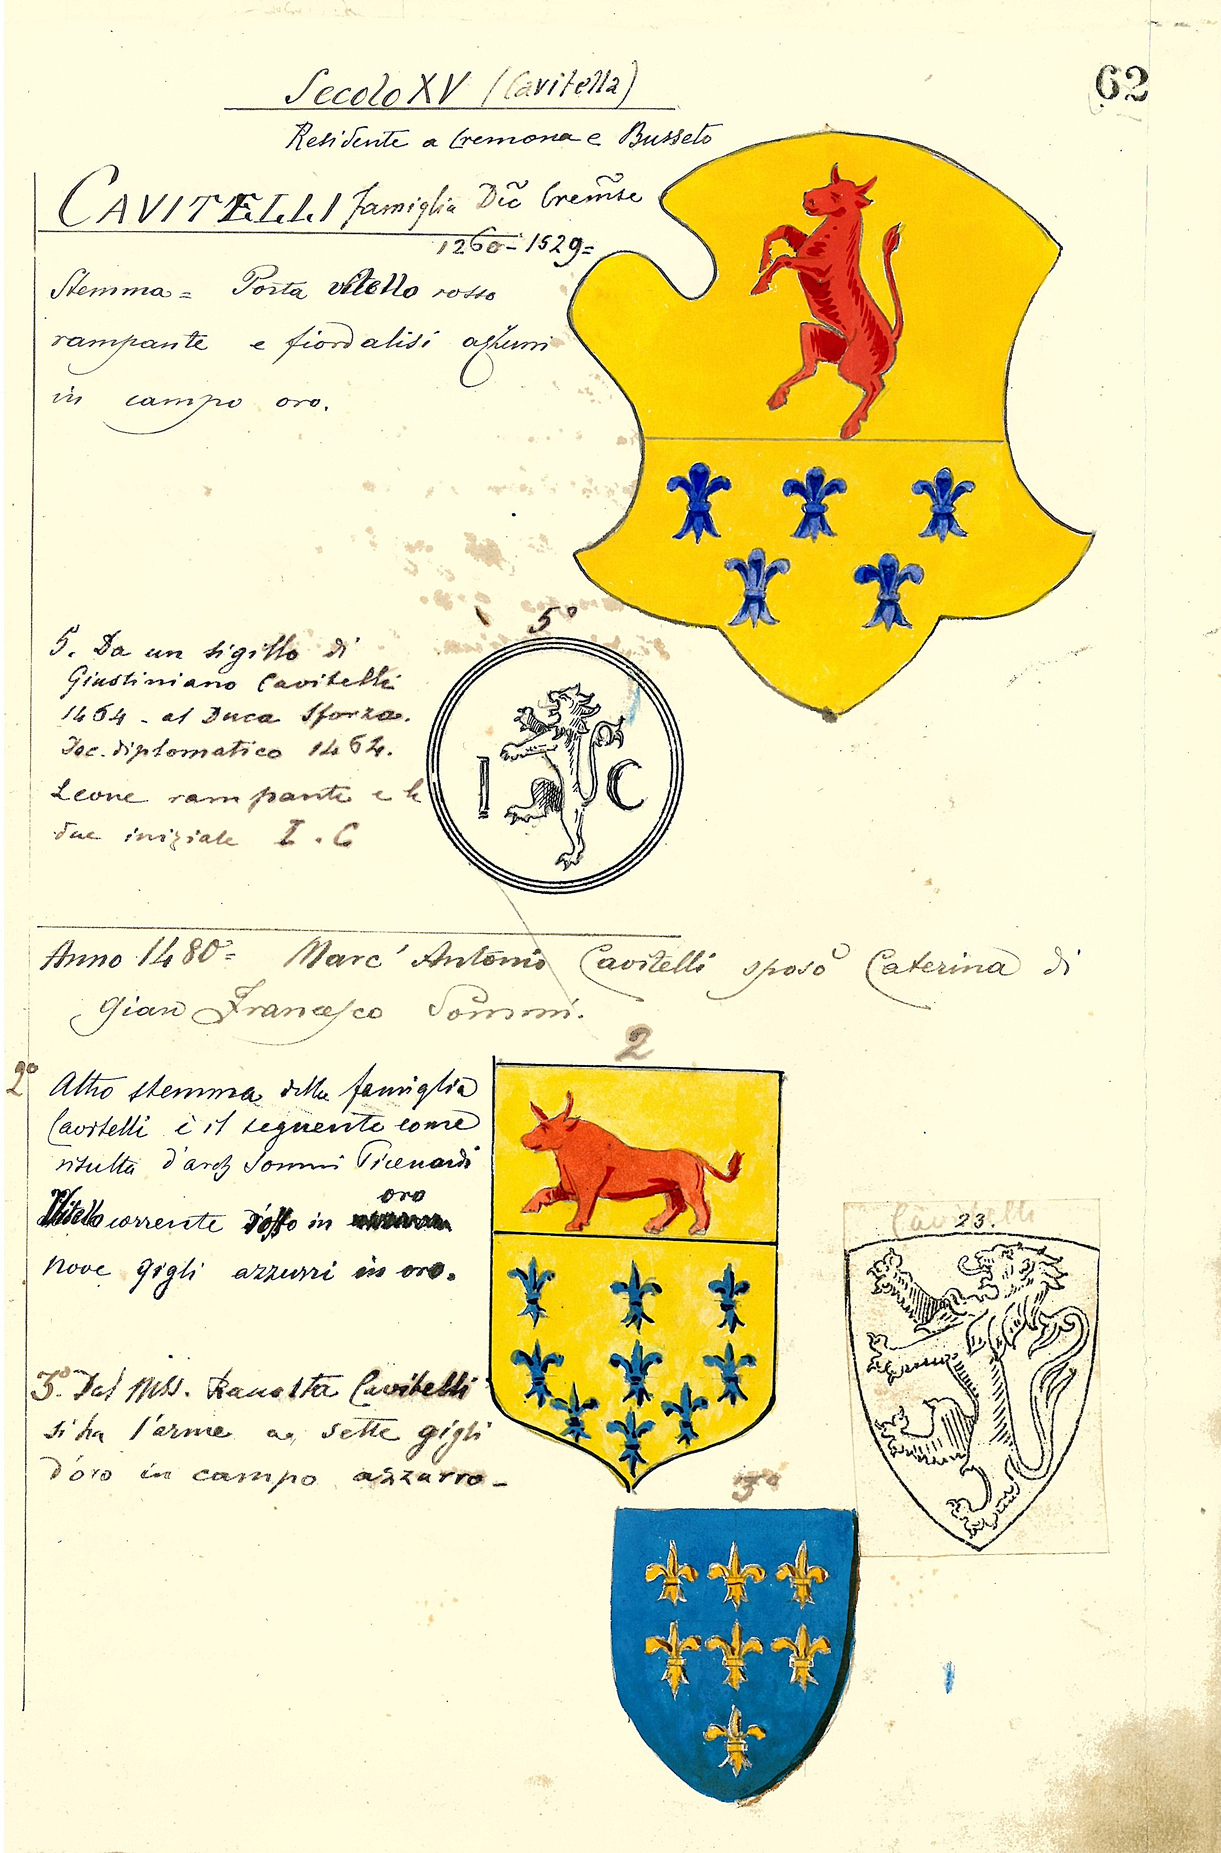 62
Secolo XV (Cavitella)
Residente a Cremona e Busseto
CAVITELLI famiglia Dic̃ Crem̃se
1260-1529=
Stemma = Porta vitello rosso
rampante e fiordalisi azzurri
in campo oro.
5°
5. Da un sigillo di
Giustiniano Cavitelli
1464 - al Duca Sforza.
Doc. diplomatico 1464.
Leone rampante e le
due iniziale I. C
I C
Anno 1480= Marc' Antonio Cavitelli sposò Caterina di
Gian Francesco Sommi.
2
2° Altro stemma della famiglia
Cavitelli è il seguente come
risulta d'arch Sommi Picenardi
oro
Vitello corrente in
nove gigli azzurri in oro.
Cavitelli
23.
3° Dal MSS. Cavitelli
si ha l'arme a sette gigli
d'oro in campo azzurro -
3°